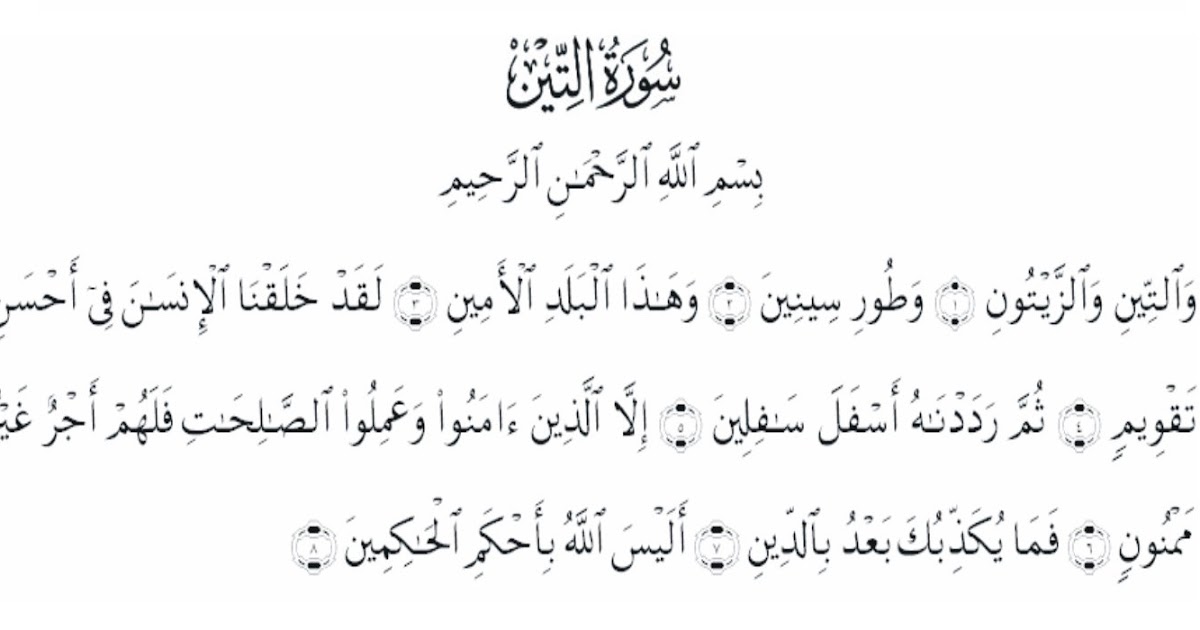 سُورَةُ التِّينِ
بِسْمِ ٱللَّهِ ٱلرَّحْمَـٰنِ ٱلرَّحِيمِ
وَٱلتِّينِ وَٱلزَّيْتُونِ ١ وَطُورِ سِينِينَ ٢ وَهَـٰذَا ٱلْبَلَدِ ٱلْأَمِينِ ٣ لَقَدْ خَلَقْنَا ٱلْإِنسَـٰنَ فِىٓ أَحْسَنِ
تَقْوِيمٍ ٤ ثُمَّ رَدَدْنَـٰهُ أَسْفَلَ سَـٰفِلِينَ ٥ إِلَّا ٱلَّذِينَ ءَامَنُوا۟ وَعَمِلُوا۟ ٱلصَّـٰلِحَـٰتِ فَلَهُمْ أَجْرٌ
مَمْنُونٍ ٦ فَمَا يُكَذِّبُكَ بَعْدُ بِٱلدِّينِ ٧ أَلَيْسَ ٱللَّهُ بِأَحْكَمِ ٱلْحَـٰكِمِينَ ٨